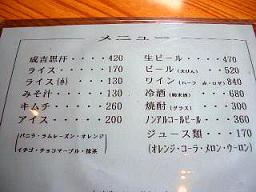 メニュー
成吉思汗・・・・420
ライス・・・・・170
ライス(小)・・・130
みそ汁・・・・・130
キムチ・・・・・260
アイス・・・・・200
(バニラ・ラムレーズン・オレンジ
イチゴ・チョコマーブル・抹茶)
生ビール・・・・470
ビール(大びん)・・520
ワイン(ハーフ 赤・ロゼ)840
冷酒(純米酒)・・・680
焼酎(グラス)・・・300
ノンアルコールビール・・360
ジュース類・・・170
(オレンジ・コーラ・メロン・ウーロン)